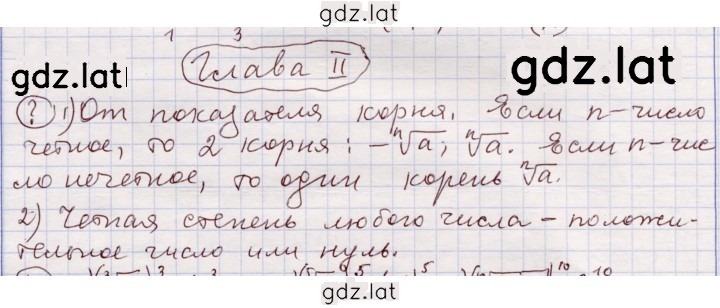 gdz.lat
1 3
gdz.lat Глава II gdz.lat
? 1) От показателя корня. Если n-число
четное, то 2 корня: -ⁿ√a; ⁿ√a. Если n-чис
ло нечетное, то один корень ⁿ√a.
2) Четная степень любого числа – положи-
тельное число или нуль.
gdz.lat